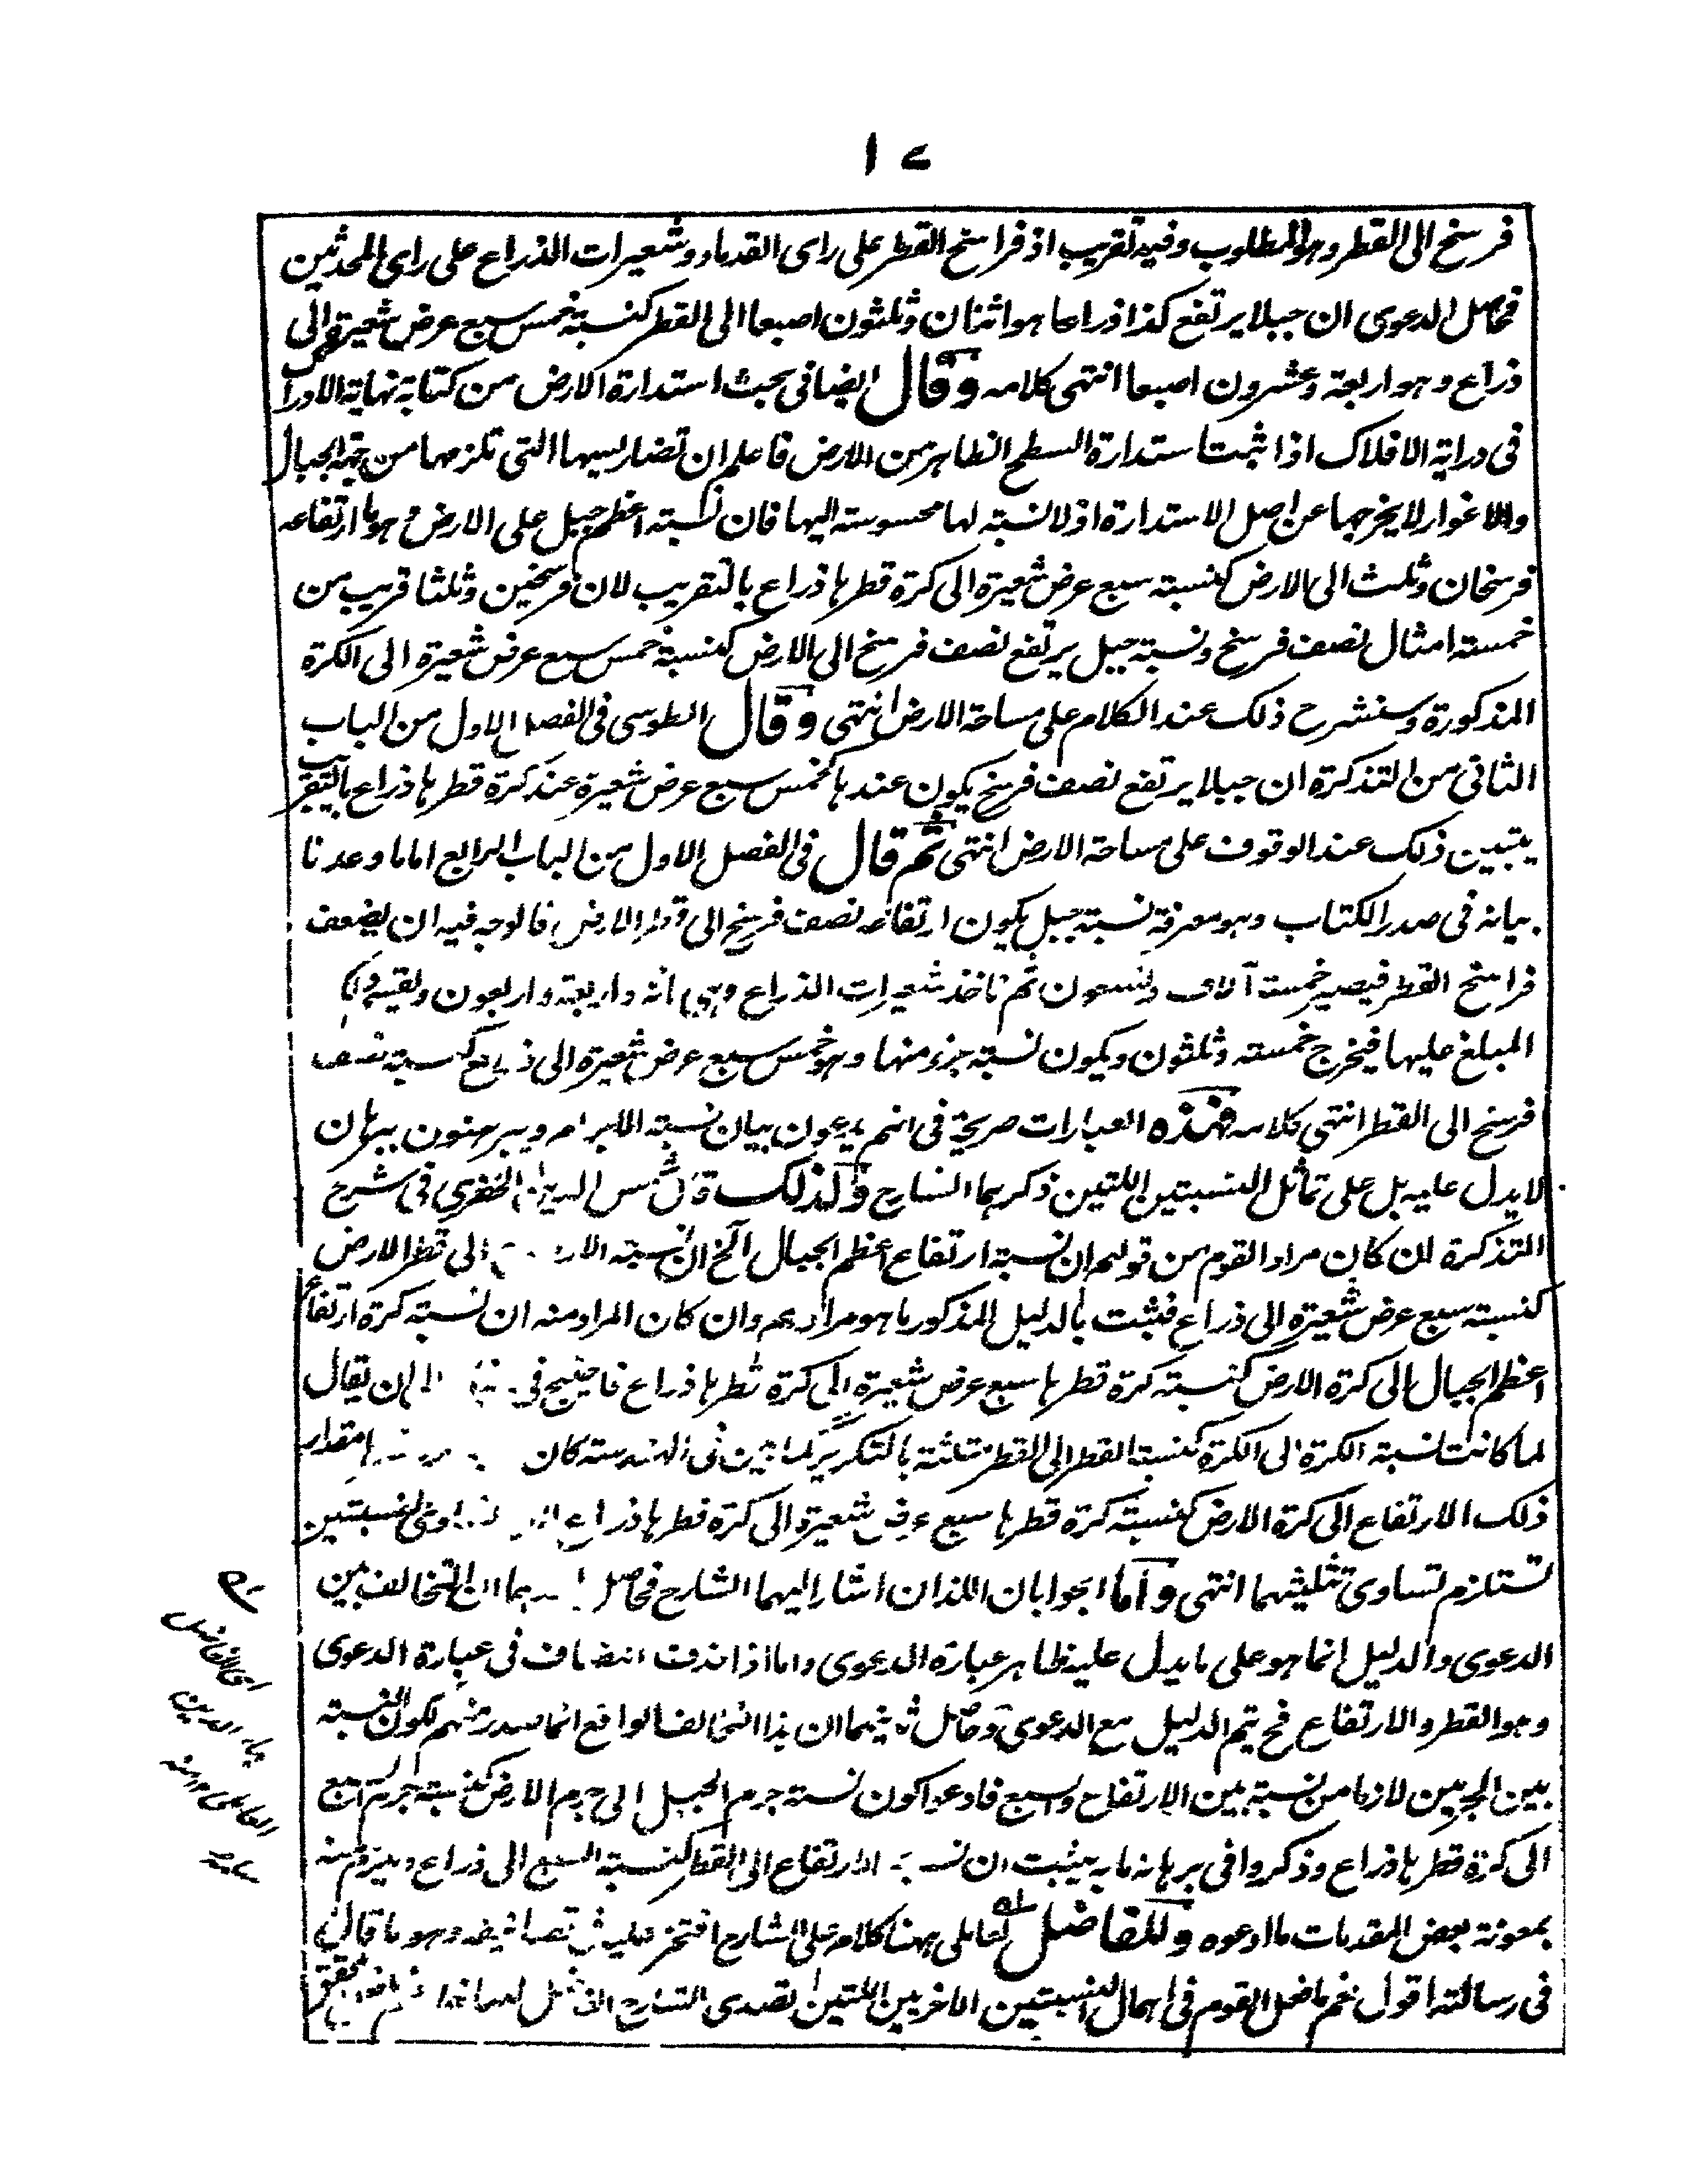 ١٠
فرسخ الى القطر وهو المطلوب وفيه تقريب اذ فراسخ القطر على راى القدماء وشعيرات الذراع على راى المحدثين
فحاصل الدعوى ان جبلا يرتفع كذا ذراعا هو اثنان وثلثون اصبعا الى القطر كنسبة خمس سبع عرض شعيرة الى
ذراع وهو اربعة وعشرون اصبعا انتهى كلامه وقال ايضا فى بحث استدارة الارض من كتابه نهاية الادراك
فى دراية الافلاك اذا ثبت استدارة السطح الظاهر من الارض فاعلم ان تضاريسها التى تلزمها من جهة الجبال
والاغوار لا يخرجها عن اصل الاستدارة اذ لا نسبة لها محسوسة اليها فان نسبة اعظم جبل على الارض وهو ما ارتفاعه
فرسخان وثلث الى الارض كنسبة سبع عرض شعيرة الى كرة قطرها ذراع بالتقريب لان فرسخين وثلثا قريب من
خمسة امثال نصف فرسخ ونسبة جبل يرتفع نصف فرسخ الى الارض كنسبة خمس سبع عرض شعيرة الى الكرة
المذكورة وسنشرح ذلك عند الكلام على مساحة الارض انتهى وقال الطوسى فى الفصل الاول من الباب
الثانى من التذكرة ان جبلا يرتفع نصف فرسخ يكون عندها كخمس سبع عرض شعيرة عند كرة قطرها ذراع بالتقريب
يتبين ذلك عند الوقوف على مساحة الارض انتهى ثم قال فى الفصل الاول من الباب الرابع اما ما وعدنا
بيانه فى صدر الكتاب وهو معرفة نسبة جبل يكون ارتفاعه نصف فرسخ الى قطر الارض فالوجه فيه ان يضعف
فراسخ القطر فيصير خمسة آلاف وتسعون ثم ناخذ شعيرات الذراع وهى مائة واربعة واربعون ونقسم
المبلغ عليها فيخرج خمسة وثلثون ويكون نسبة جزء منها وهو خمس سبع عرض شعيرة الى ذراع كنسبة نصف
فرسخ الى القطر انتهى كلامه فهذه العبارات صريحة فى انهم يدعون بيان نسبة الاجرام ويبرهنون ببرهان
لا يدل عليه بل على تماثل النسبتين اللتين ذكرهما الشارح ولذلك قال شمس الدين الخفرى فى شرح
التذكرة ان كان مراد القوم من قولهم ان نسبة ارتفاع اعظم الجبال الخ ان نسبة الارتفاع الى قطر الارض
كنسبة سبع عرض شعيرة الى ذراع فثبت بالدليل المذكور ما هو مرادهم وان كان المراد منه ان نسبة كرة ارتفاع
اعظم الجبال الى كرة الارض كنسبة كرة قطرها سبع عرض شعيرة الى كرة قطرها ذراع فاحتيج فى الى ان يقال
لما كانت نسبة الكرة الى الكرة كنسبة القطر الى القطر مثلثة بالتكرير كما تبين فى الهندسة كان مقدار
ذلك الارتفاع الى كرة الارض كنسبة كرة قطرها سبع عرض شعيرة الى كرة قطرها ذراع النسبتين
تستلزم تساوى تثليثهما انتهى واما الجوابان اللذان اشار اليهما الشارح فحاصل ان التخالف بين
الدعوى والدليل انما هو على ما يدل عليه ظاهر عبارة الدعوى واما اذا حذف المضاف فى عبارة الدعوى
وهو القطر والارتفاع فح يتم الدليل مع الدعوى وحاصل ثانيهما ان هذا التخالف الواقع انما صدر منهم لكون النسبة
بين الجرمين لازما من نسبة بين الارتفاع والسبع فادعوا كون نسبة جرم الجبل الى جرم الارض كنسبة جرم السبع
الى كرة قطرها ذراع وذكروا فى برهانه ما به يثبت ان نسبة الارتفاع الى القطر كنسبة السبع الى ذراع ويلزم منه
بمعونة بعض المقدمات ما ادعوه وللفاضل العاملى ههنا كلام على الشارح افتخر عليه فى تصانيفه وهو ما قال
فى رسالته اقول نعم ما فعل القوم فى اهمال النسبتين الاخريين اللتين تصدى الشارح الفاضل لهما
الفاضل
بهاء الدين
العاملى